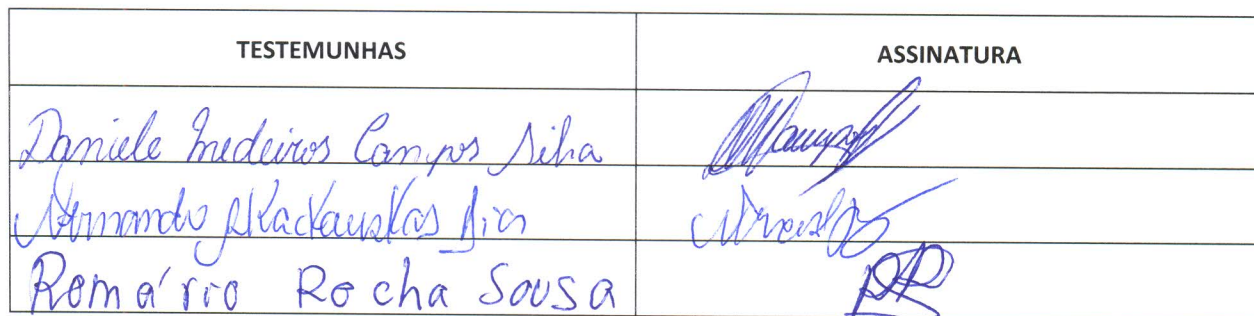 TESTEMUNHAS ASSINATURA
Daniele Medeiros Campos Silva
Armando
Romário Rocha Sousa